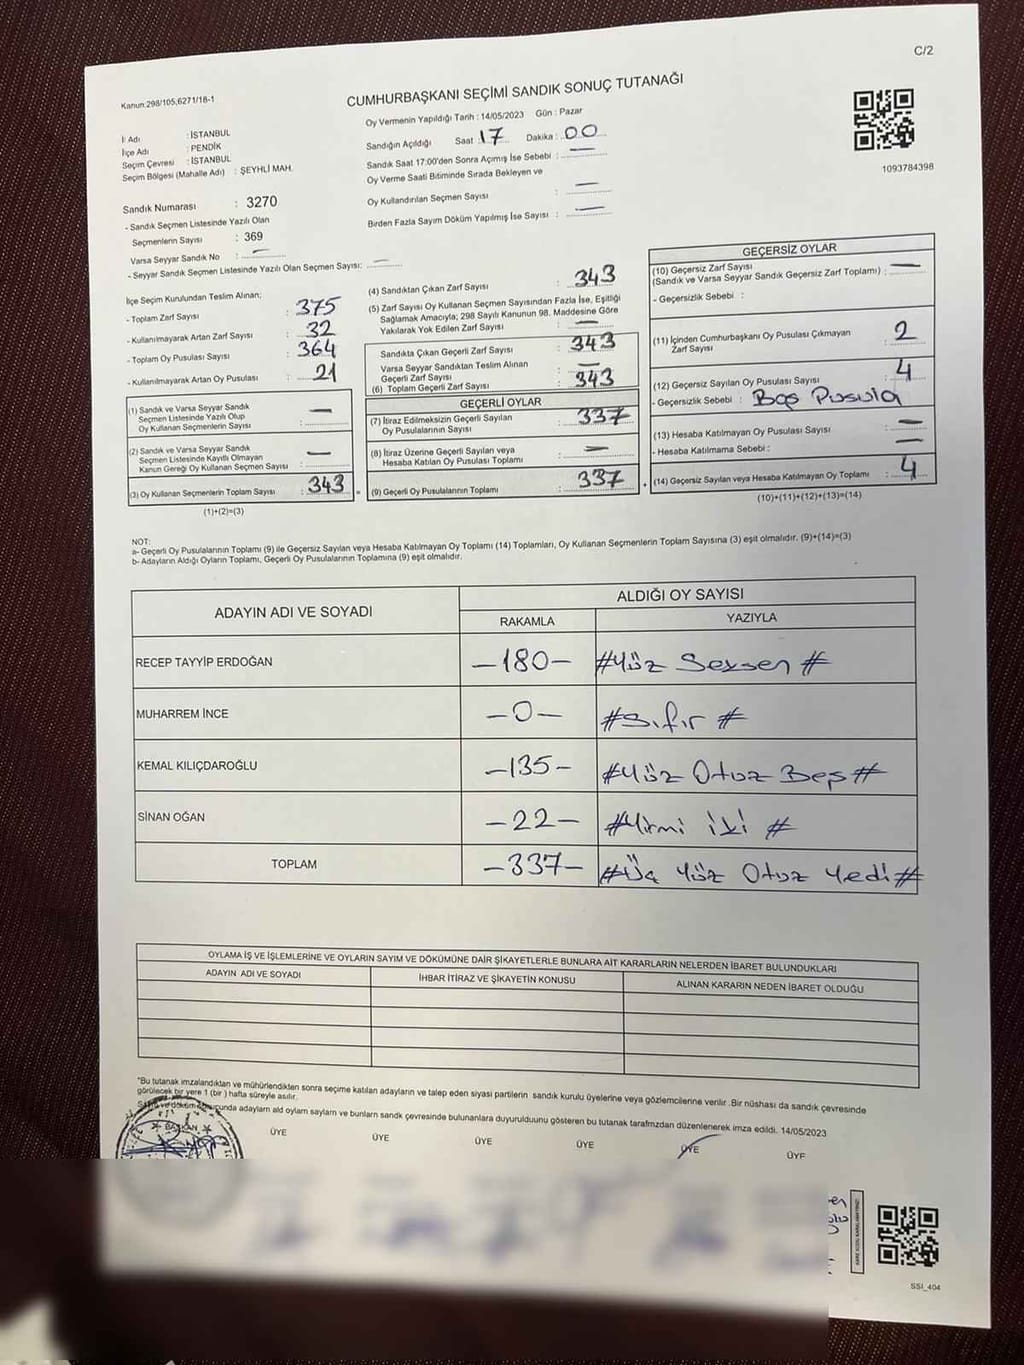 C/2
Kanun:298/105,6271/18-1
CUMHURBAŞKANI SEÇİMİ SANDIK SONUÇ TUTANAĞI
İl Adı : İSTANBUL
İlçe Adı : PENDİK
Seçim Çevresi : İSTANBUL
Seçim Bölgesi (Mahalle Adı) : ŞEYHLİ MAH.
Oy Vermenin Yapıldığı Tarih : 14/05/2023 Gün : Pazar
Sandığın Açıldığı Saat 17 Dakika : 00
Sandık Saat 17:00'den Sonra Açımış İse Sebebi : —
Oy Verme Saati Bitiminde Sırada Bekleyen ve
Oy Kullandırılan Seçmen Sayısı : —
Birden Fazla Sayım Döküm Yapılmış İse Sayısı : —
1093784398
Sandık Numarası : 3270
- Sandık Seçmen Listesinde Yazılı Olan
Seçmenlerin Sayısı : 369
Varsa Seyyar Sandık No : —
- Seyyar Sandık Seçmen Listesinde Yazılı Olan Seçmen Sayısı: —
İlçe Seçim Kurulundan Teslim Alınan;
- Toplam Zarf Sayısı : 375
- Kullanılmayarak Artan Zarf Sayısı : 32
- Toplam Oy Pusulası Sayısı : 364
- Kullanılmayarak Artan Oy Pusulası : 21
(1) Sandık ve Varsa Seyyar Sandık
Seçmen Listesinde Yazılı Olup
Oy Kullanan Seçmenlerin Sayısı : —
(2) Sandık ve Varsa Seyyar Sandık
Seçmen Listesinde Kayıtlı Olmayan
Kanun Gereği Oy Kullanan Seçmen Sayısı : —
(3) Oy Kullanan Seçmenlerin Toplam Sayısı : 343
(1)+(2)=(3)
(4) Sandıktan Çıkan Zarf Sayısı : 343
(5) Zarf Sayısı Oy Kullanan Seçmen Sayısından Fazla İse, Eşitliği
Sağlamak Amacıyla; 298 Sayılı Kanunun 98. Maddesine Göre
Yakılarak Yok Edilen Zarf Sayısı : —
Sandıkta Çıkan Geçerli Zarf Sayısı : 343
Varsa Seyyar Sandıktan Teslim Alınan
Geçerli Zarf Sayısı : —
(6) Toplam Geçerli Zarf Sayısı : 343
GEÇERLİ OYLAR
(7) İtiraz Edilmeksizin Geçerli Sayılan
Oy Pusulalarının Sayısı : 337
(8) İtiraz Üzerine Geçerli Sayılan veya
Hesaba Katılan Oy Pusulası Toplamı : —
= (9) Geçerli Oy Pusulalarının Toplamı : 337 +
GEÇERSİZ OYLAR
(10) Geçersiz Zarf Sayısı
(Sandık ve Varsa Seyyar Sandık Geçersiz Zarf Toplamı) : —
- Geçersizlik Sebebi :
(11) İçinden Cumhurbaşkanı Oy Pusulası Çıkmayan
Zarf Sayısı : 2
(12) Geçersiz Sayılan Oy Pusulası Sayısı : 4
- Geçersizlik Sebebi : Boş Pusula
(13) Hesaba Katılmayan Oy Pusulası Sayısı : —
- Hesaba Katılmama Sebebi : —
(14) Geçersiz Sayılan veya Hesaba Katılmayan Oy Toplamı : 4
(10)+(11)+(12)+(13)=(14)
NOT:
a- Geçerli Oy Pusulalarının Toplamı (9) ile Geçersiz Sayılan veya Hesaba Katılmayan Oy Toplamı (14) Toplamları, Oy Kullanan Seçmenlerin Toplam Sayısına (3) eşit olmalıdır. (9)+(14)=(3)
b- Adayların Aldığı Oyların Toplamı, Geçerli Oy Pusulalarının Toplamına (9) eşit olmalıdır.
ADAYIN ADI VE SOYADI
ALDIĞI OY SAYISI
RAKAMLA YAZIYLA
RECEP TAYYİP ERDOĞAN —180— #Yüz Seksen #
MUHARREM İNCE —0— #Sıfır #
KEMAL KILIÇDAROĞLU —135— #Yüz Otuz Beş #
SİNAN OĞAN —22— #Yirmi iki #
TOPLAM —337— #Üç Yüz Otuz Yedi #
OYLAMA İŞ VE İŞLEMLERİNE VE OYLARIN SAYIM VE DÖKÜMÜNE DAİR ŞİKAYETLERLE BUNLARA AİT KARARLARIN NELERDEN İBARET BULUNDUKLARI
ADAYIN ADI VE SOYADI İHBAR İTİRAZ VE ŞİKAYETİN KONUSU ALINAN KARARIN NEDEN İBARET OLDUĞU
"Bu tutanak imzalandıktan ve mühürlendikten sonra seçime katılan adayların ve talep eden siyasi partilerin sandık kurulu üyelerine veya gözlemcilerine verilir .Bir nüshası da sandık çevresinde
görülecek bir yere 1 (bir ) hafta süreyle asılır.
adayların ald oyların sayların ve bunların sandk çevresinde bulunanlara duyurulduunu gösteren bu tutanak tarafmzdan düzenlenerek imza edildi. 14/05/2023
BAŞKAN ÜYE ÜYE ÜYE ÜYE ÜYE ÜYE
SSI_404